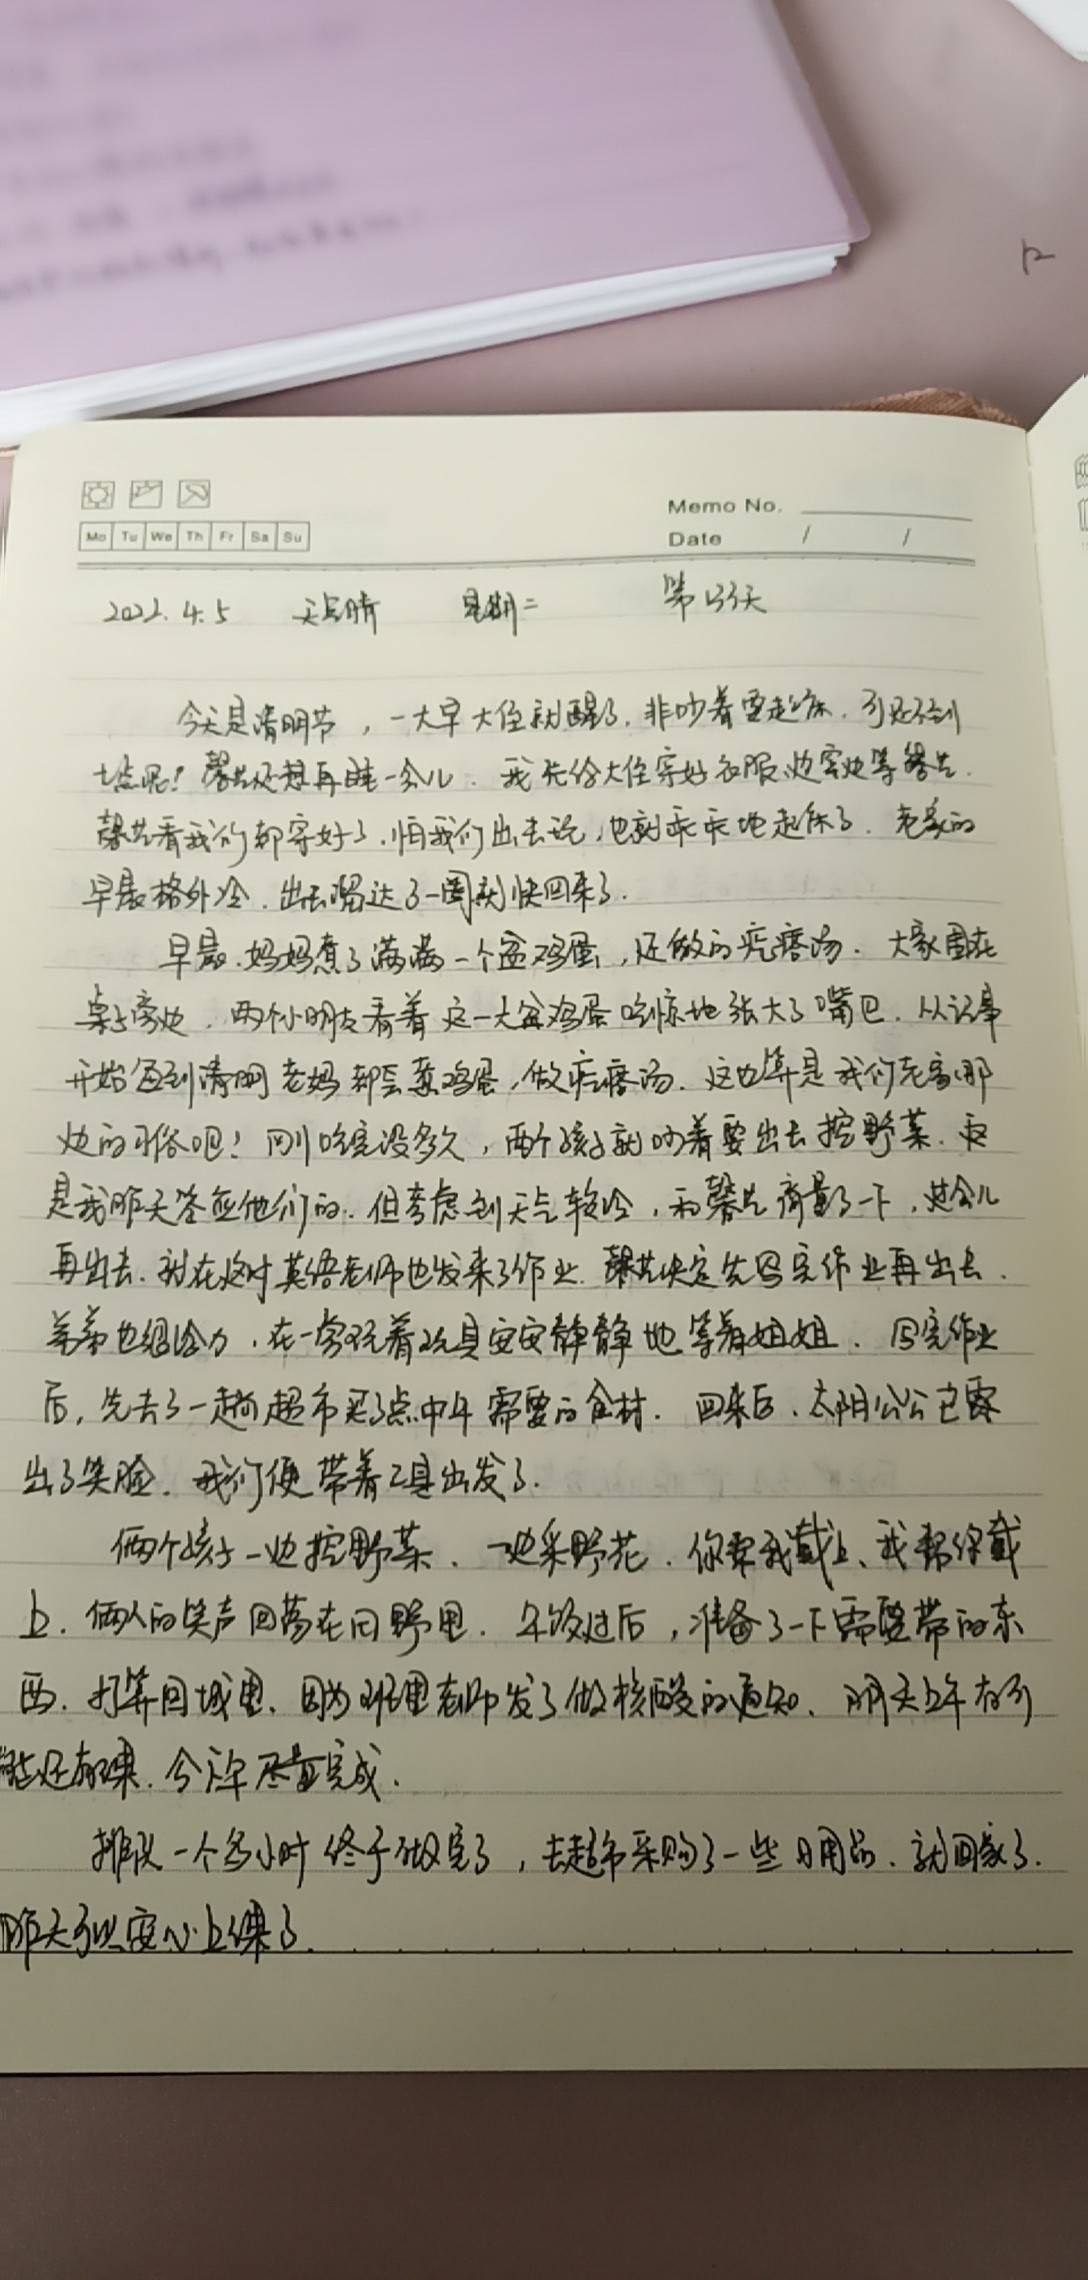 Memo No.
Mo Tu We Th Fr Sa Su
Date / /
2022.4.5 天气晴 星期二 第 天
今天是清明节，一大早大侄就醒了，非吵着要起床，可还不到
七点呢！馨艺还想再睡一会儿，我先给大侄穿好衣服，边穿边等馨艺.
馨艺看我们都穿好了，怕我们出去玩，也就乖乖地起床了.老家的
早晨格外冷.出去溜达了一圈就快回来了.
早晨.妈妈煮了满满一个盆鸡蛋，还做的疙瘩汤.大家围在
桌子旁边.两个小朋友看着这一大盆鸡蛋吃惊地张大了嘴巴.从记事
开始每到清明老妈都会煮鸡蛋，做疙瘩汤.这也算是我们老家那
边的习俗吧！刚吃完没多久，两个孩子就吵着要出去挖野菜.这
是我昨天答应他们的.但考虑到天气较冷，和馨艺商量了一下，过会儿
再出去.就在这时英语老师也发来了作业.馨艺决定先写完作业再出去.
弟弟也很给力，在一旁玩着玩具安安静静地等着姐姐.写完作业
后，先去了一趟超市买了点中午需要的食材.回来后.太阳公公已露
出了笑脸.我们便带着工具出发了.
俩个孩子一边挖野菜、一边采野花.你帮我戴上、我帮你戴
上.俩人的笑声回荡在田野里.午饭过后，准备了一下需要带的东
西.打算回城里.因为班里老师发了做核酸的通知、明天上午有可
能还有课.今下午尽量完成.
排队一个多小时终于做完了，去超市采购了一些日用品.就回家了.
昨天可以安心上课了.